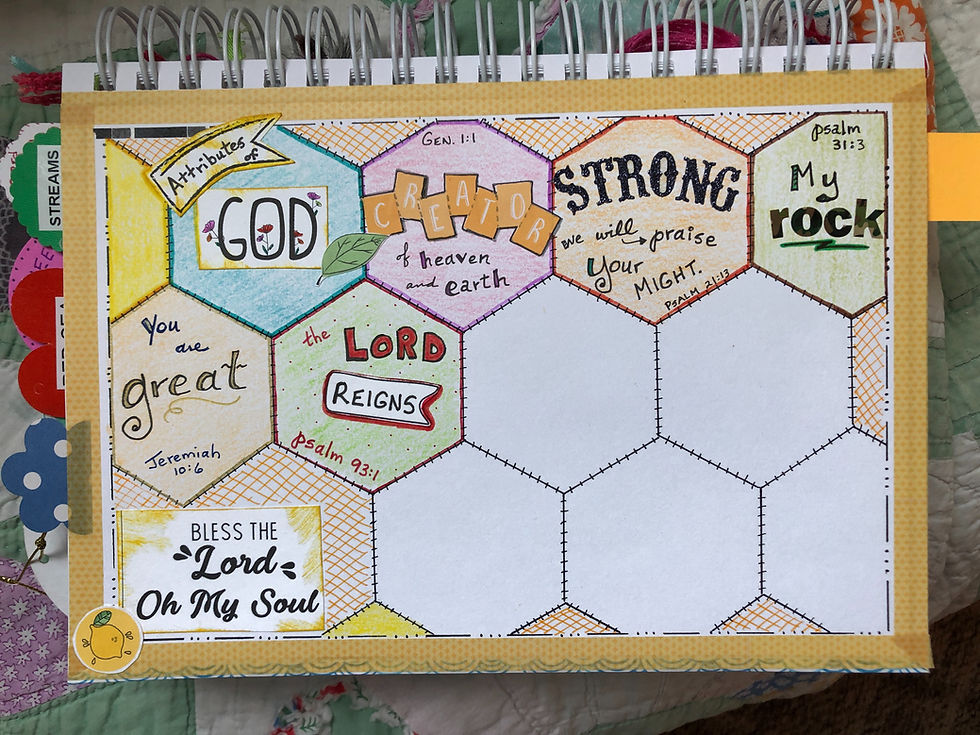 Attributes
of
GOD
GEN. 1:1
CREATOR
of heaven
and earth
STRONG
we will praise
your
MIGHT.
PSALM 21:13
psalm
31:3
My
rock
You
are
great
Jeremiah
10:6
the LORD
REIGNS
psalm 93:1
BLESS THE
Lord
Oh My Soul
STREAMS